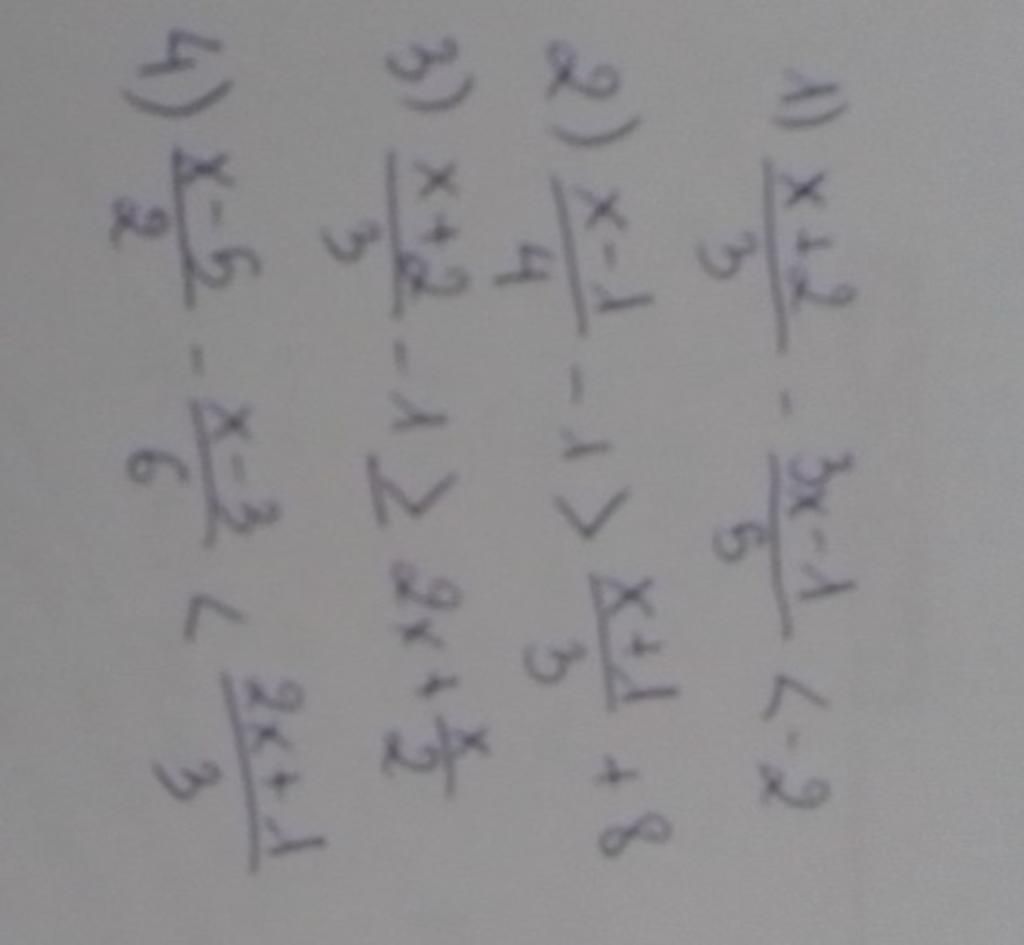 1) \frac{x+2}{3} - \frac{3x-1}{5} < -2
2) \frac{x-1}{4} - 1 > \frac{x+1}{3} + 8
3) \frac{x+2}{3} - 1 ≥ 2x + \frac{x}{2}
4) \frac{x-5}{2} - \frac{x-3}{6} < \frac{2x+1}{3}